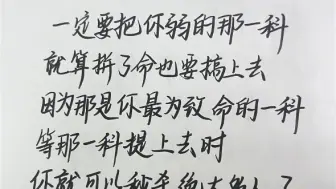 一定要把你弱的那一科
就算拼了命也要搞上去
因为那是你最为致命的一科
等那一科提上去时
你就可以秒杀绝大多人了